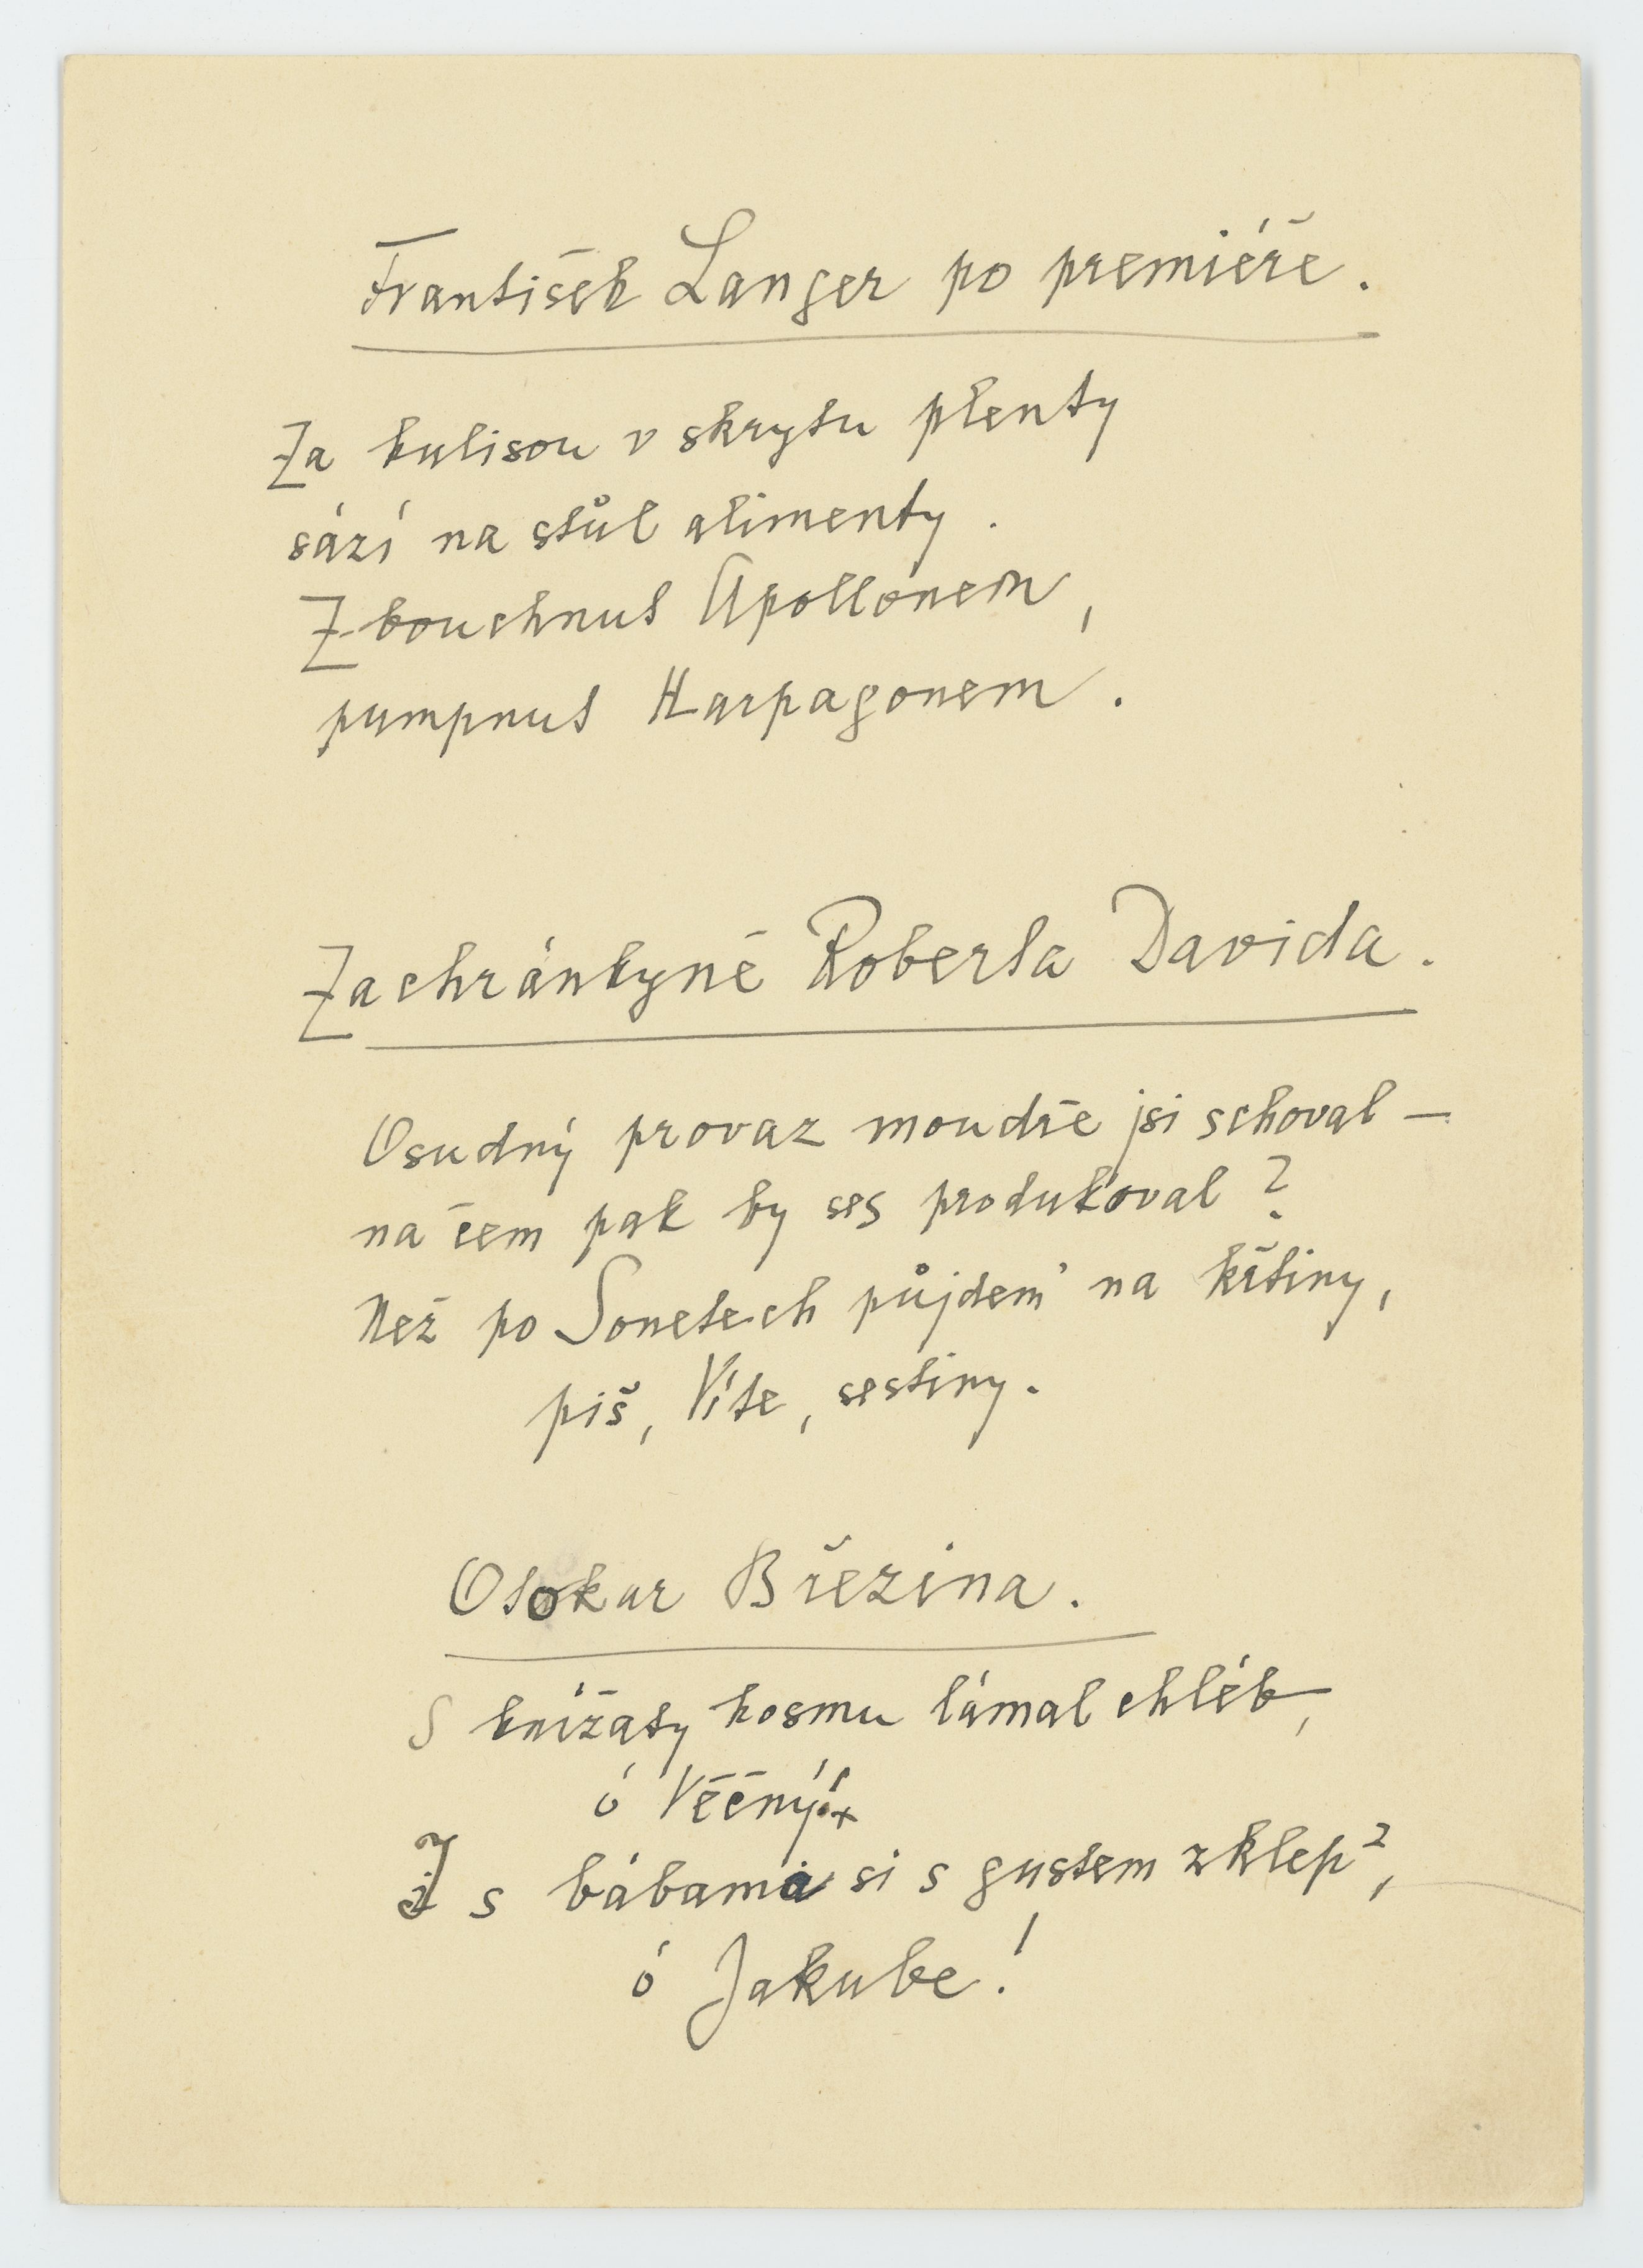 František Langer po premiéře.
Za kulisou v skrytu plenty
sází na stůl alimenty.
Zbouchnut Apollónem,
pumpnut Harpagonem.
Zachránkyně Roberta Davida.
Osudný provaz moudře jsi schoval —
na čem pak by ses produkoval?
Než po Sonetech půjdem' na křtiny,
piš, Víte, sestiny.
Otokar Březina.
S knížaty kosmu lámal chléb,
ó Věčný!
I s bábami si s gustem zklep',
ó Jakube!